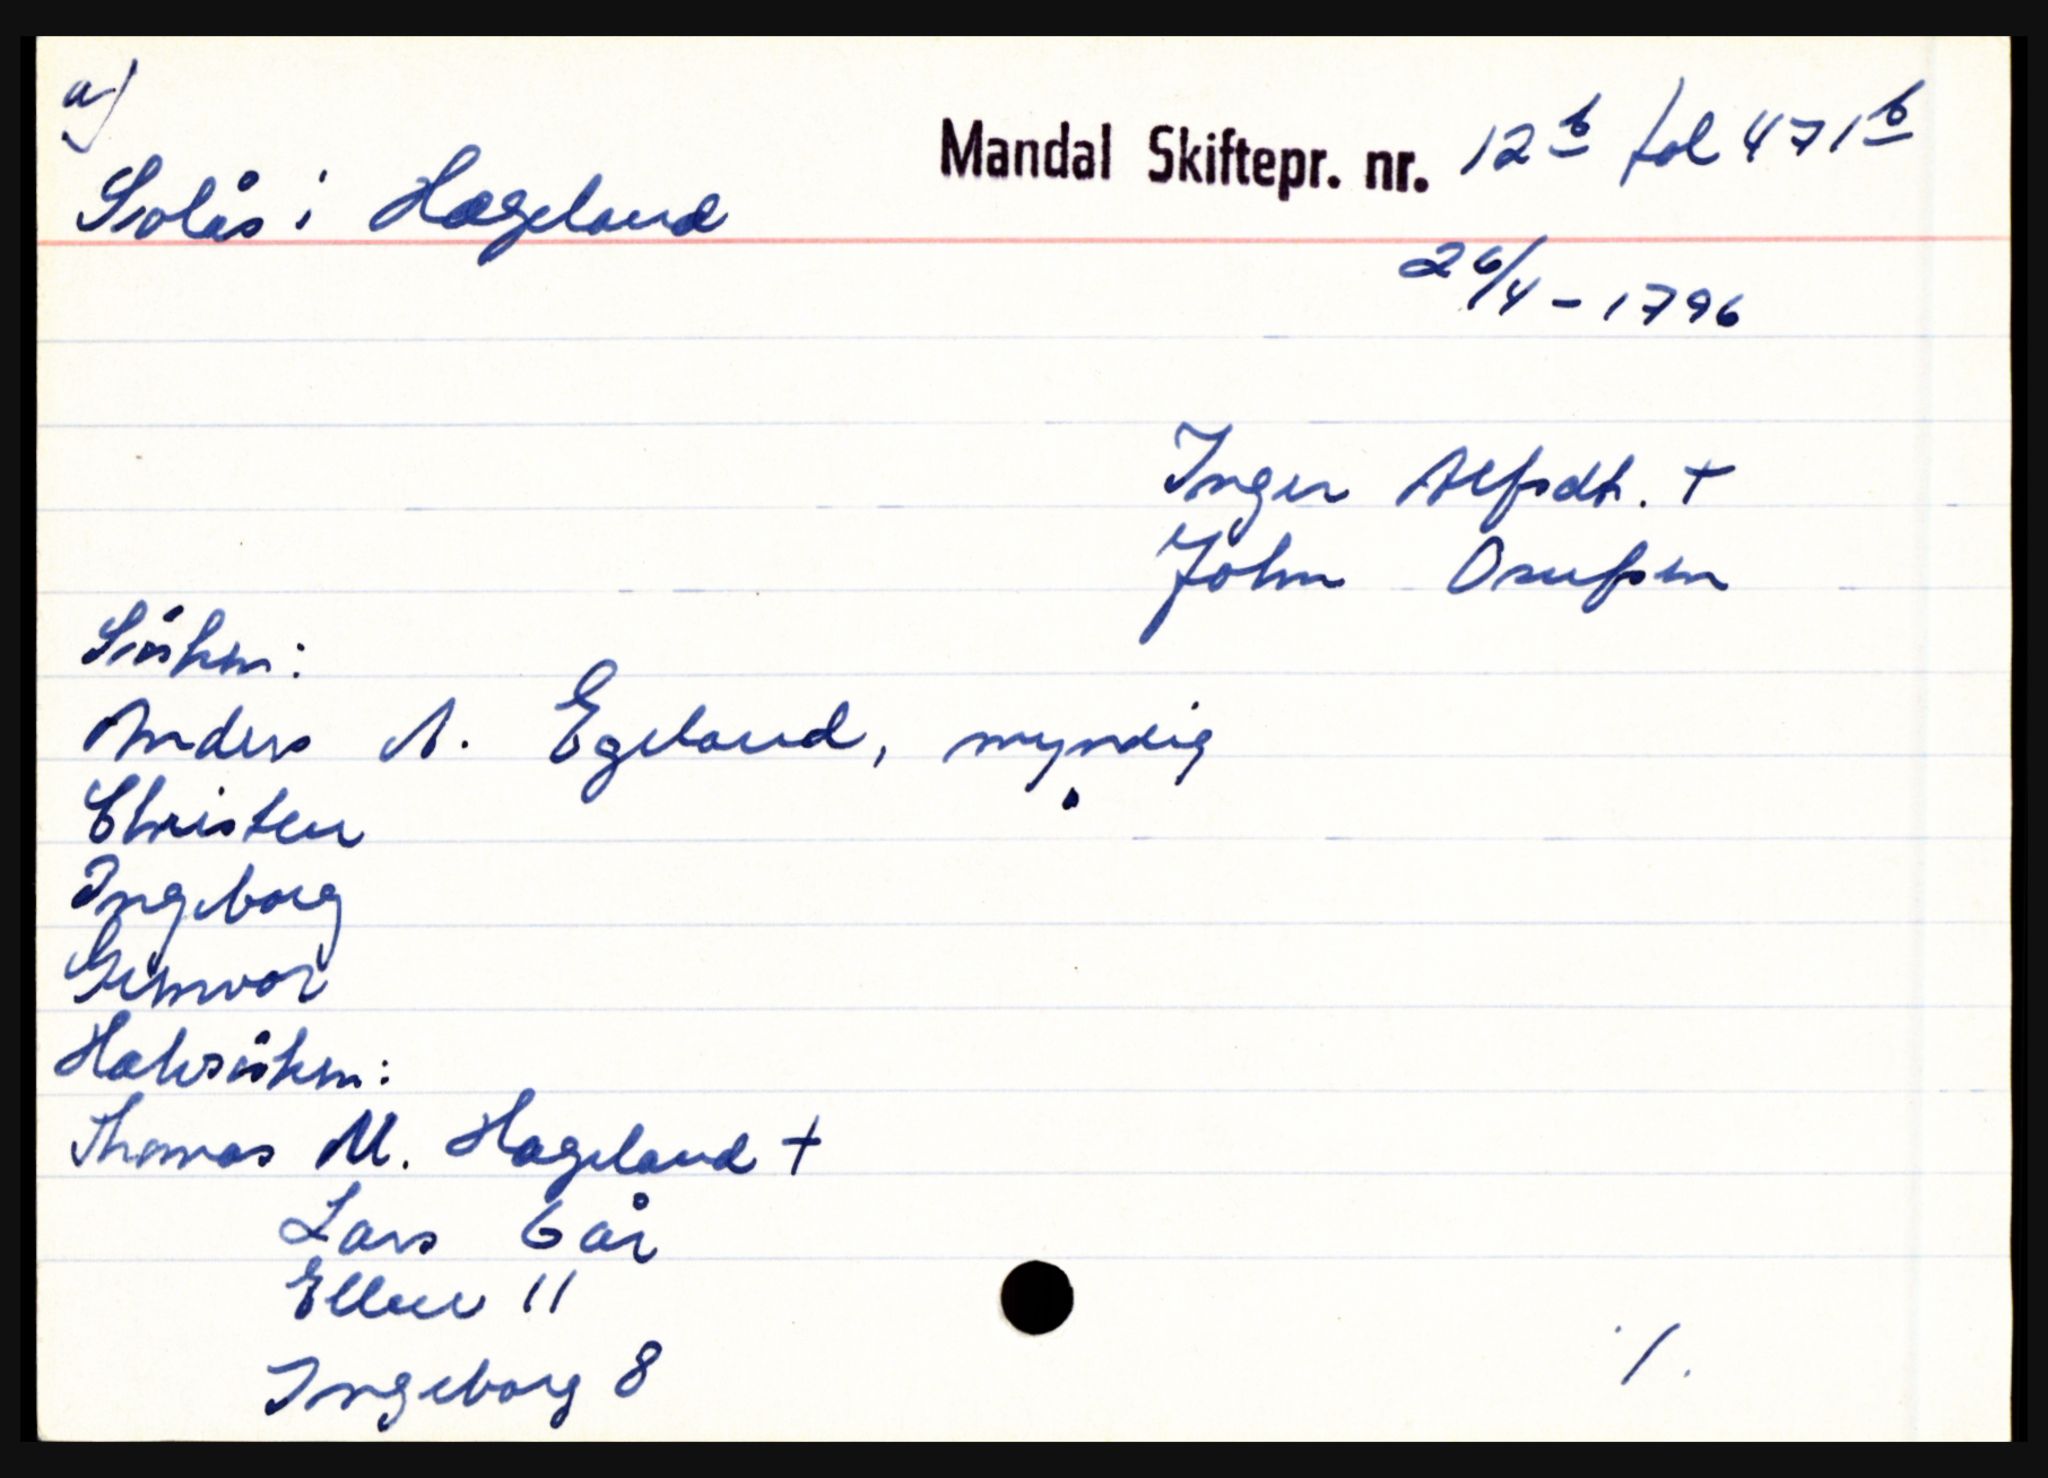 a)
Solås i Hægeland
Mandal Skiftepr. nr. 12 b fol 471 b
26/4 - 1796
Inger Alfsdt. +
John Osufsen
Sösken:
Anders A. Egeland, myndig
Christen
Ingeborg
Gunvor
Halvsösken:
Thomas M. Hageland +
Lars 6 år
Ellen 11
Ingeborg 8
./.